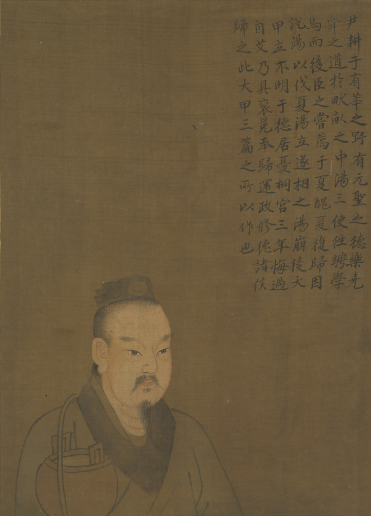 尹耕于有莘之野有元聖之德樂堯
舜之道於畎畝之中湯三使往聘學
焉而後臣之嘗薦于夏醜夏復歸因
說湯以伐夏湯立遂相之湯崩後大
甲立不明于德居憂桐宮三年悔過
自艾乃具袞冕奉歸還政修德諸侯
歸之此大甲三篇之所以作也